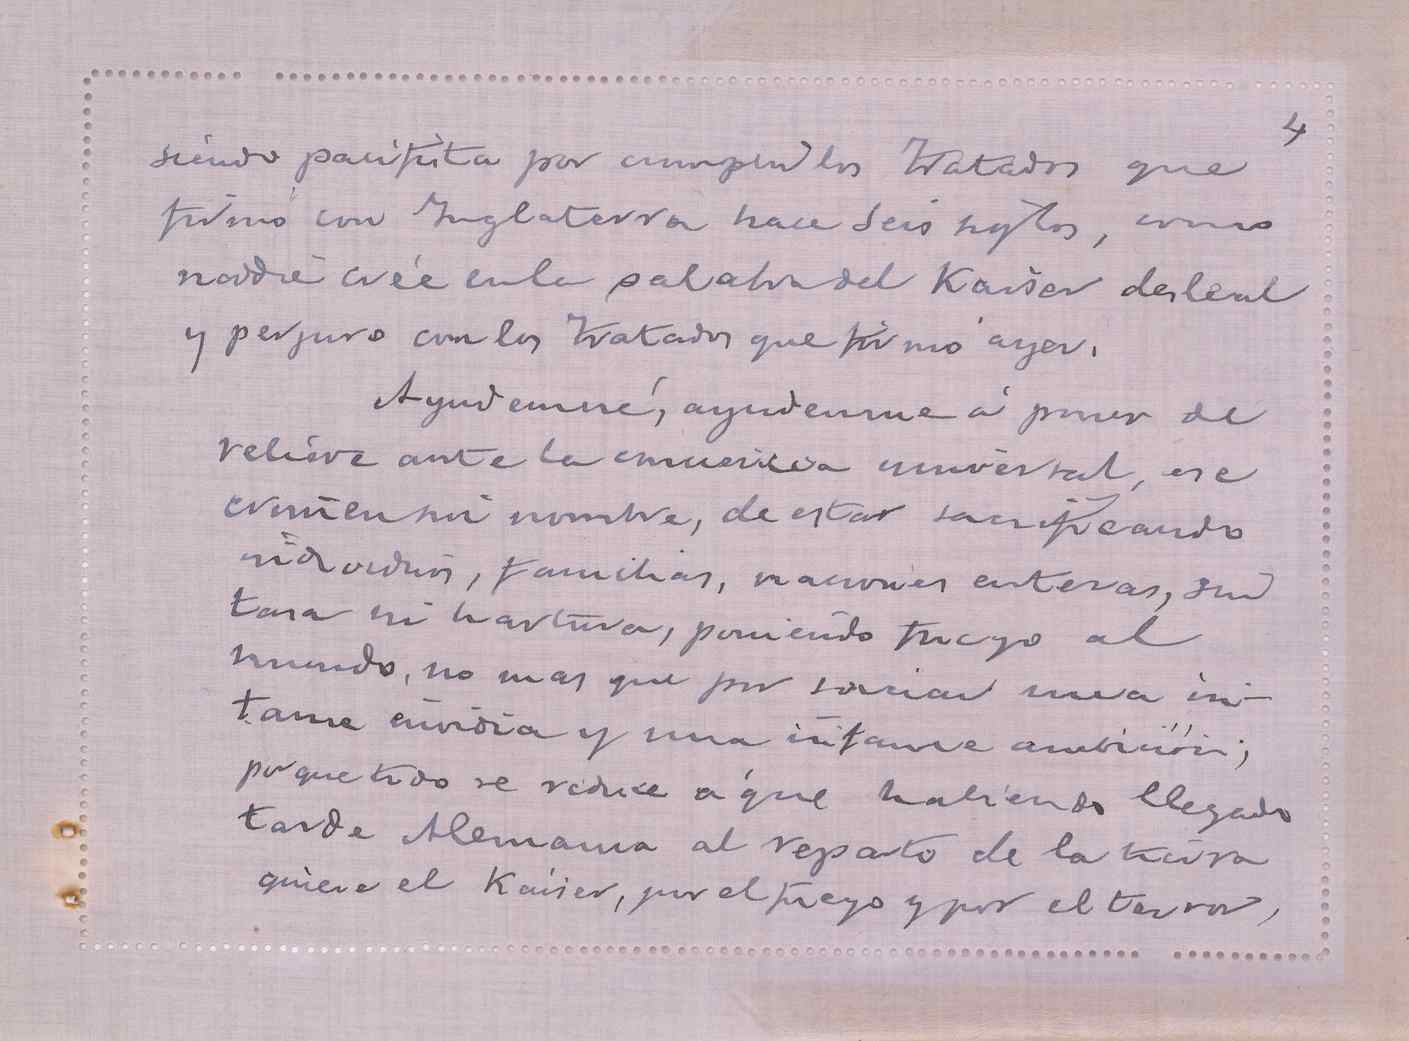 4
siendo pacifista por cumplir los Tratados que
firmó con Inglaterra hace seis siglos, como
nadie crée en la palabra del Kaiser desleal
y perjuro con los Tratados que firmó ayer.
Ayudenme, ayudenme á poner de
relieve ante la conciencia universal, ese
crimen sin nombre, de estar sacrificando
individuos, familias, naciones enteras, sin
tasa ni hartura, poniendo fuego al
mundo, no mas que por saciar una in-
fame envidia y una infame ambición;
porque todo se reduce a que habiendo llegado
tarde Alemania al reparto de la tierra
quiere el Kaiser, por el fuego y por el terror,